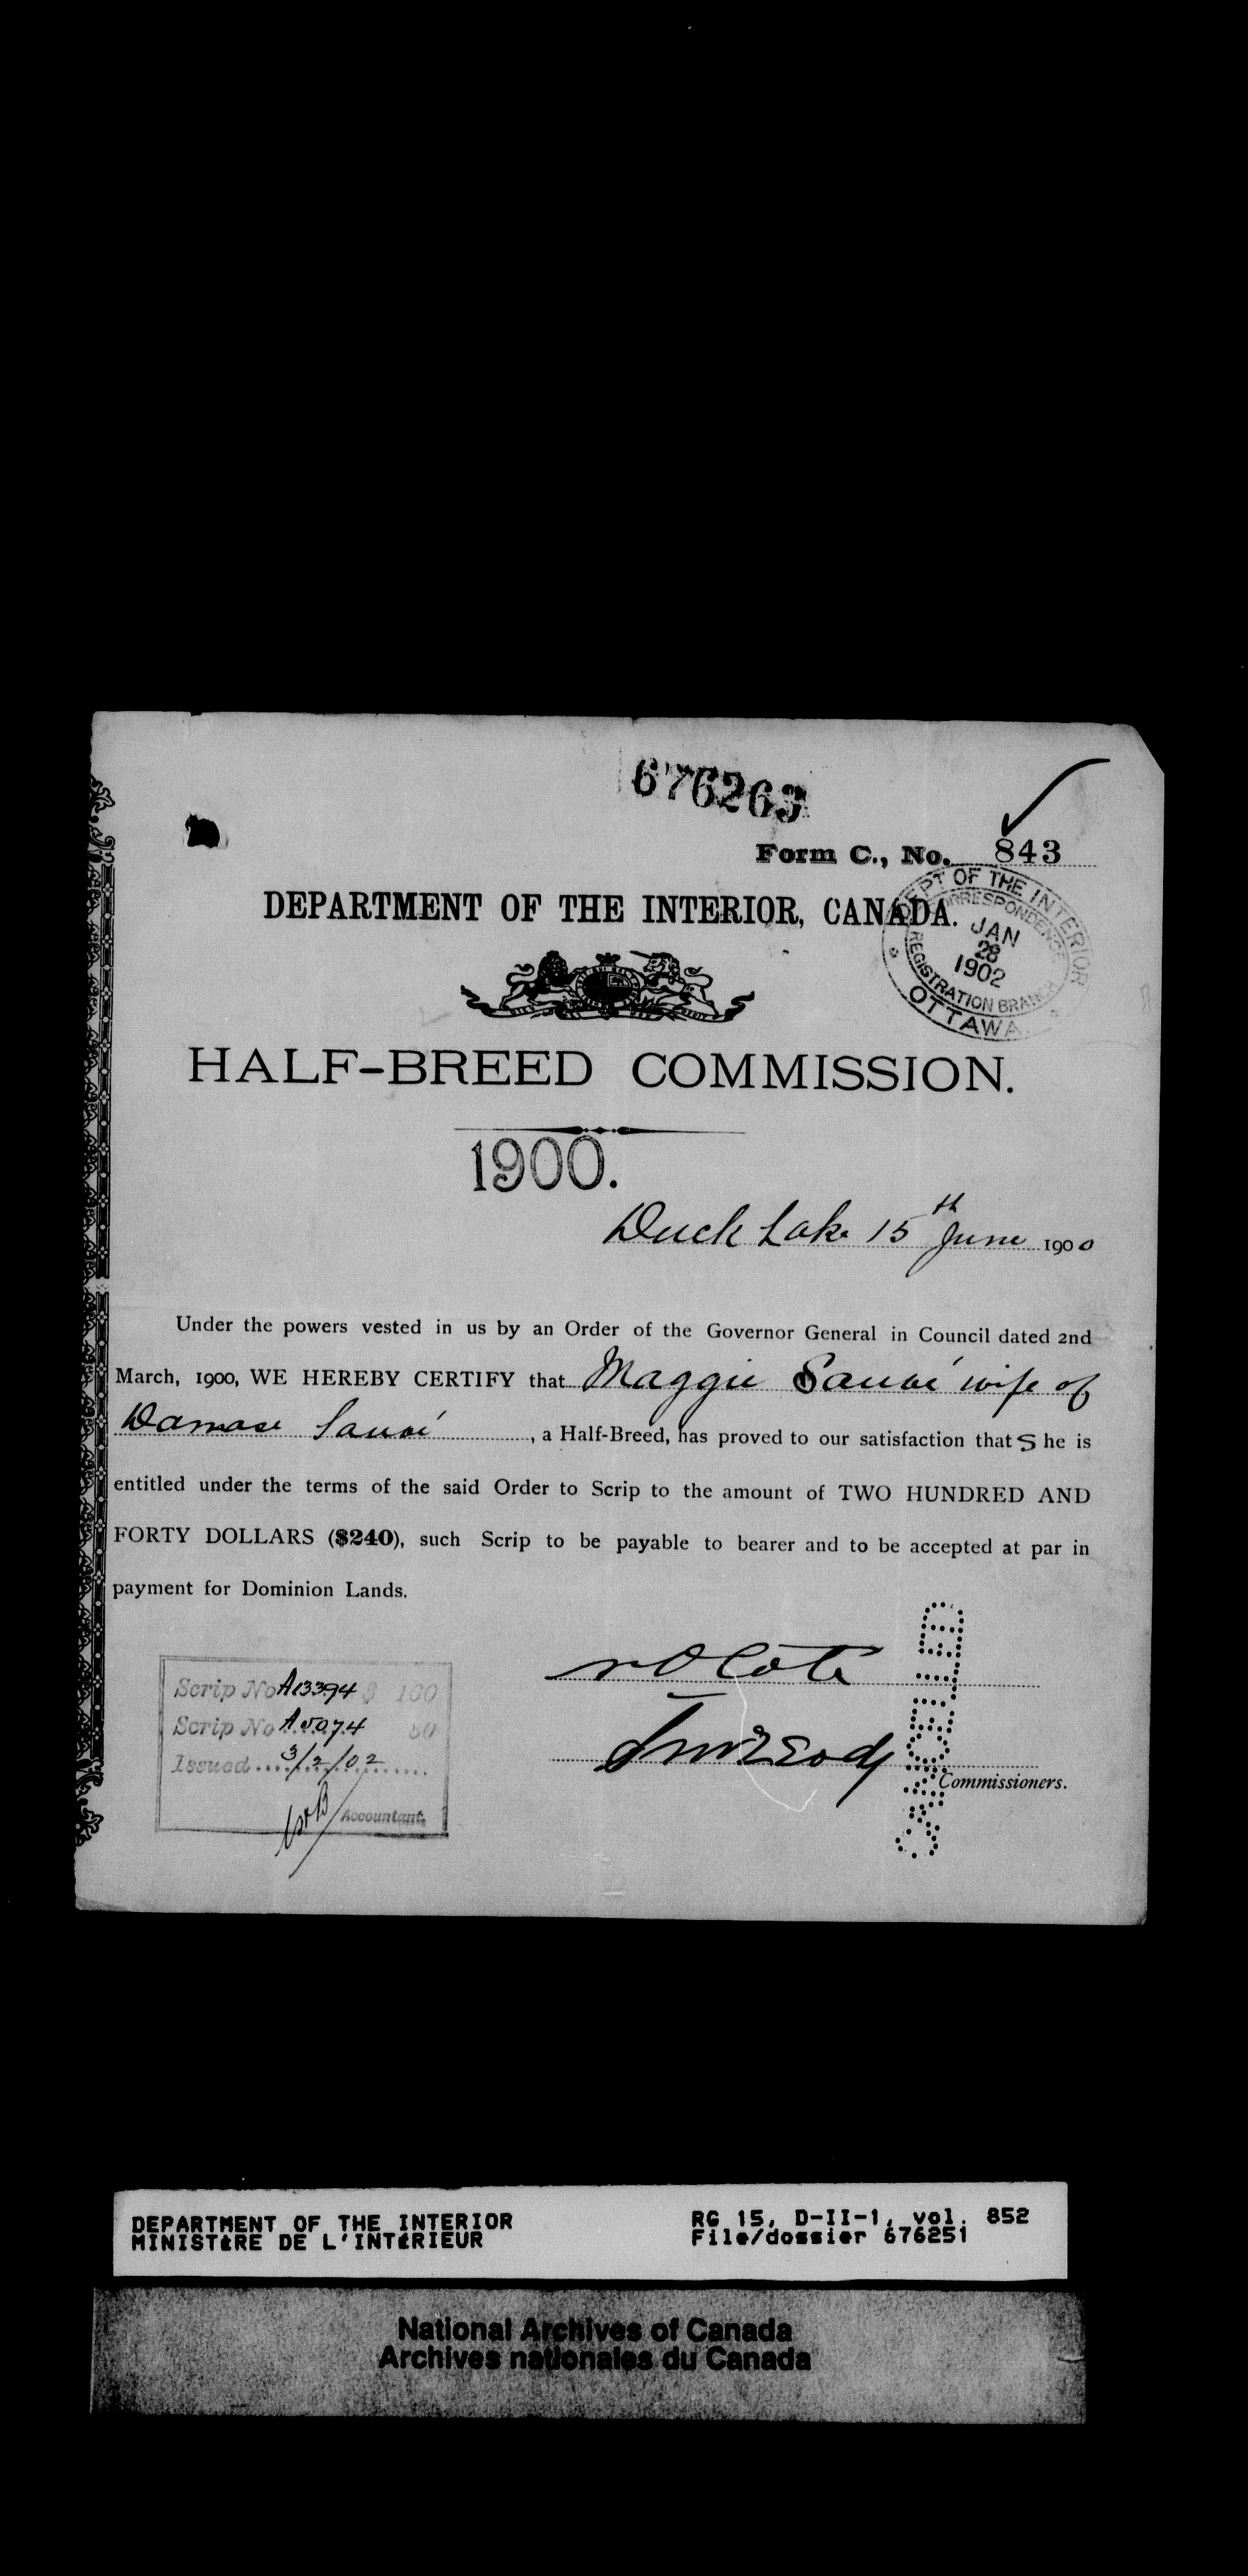 676263
Form C., No. 843
DEPARTMENT OF THE INTERIOR, CANADA.
DEPT OF THE INTERIOR
CORRESPONDENCE
JAN
28
1902
REGISTRATION BRANCH
OTTAWA
HALF-BREED COMMISSION.
1900.
Duck Lake 15th June 1900
Under the powers vested in us by an Order of the Governor General in Council dated 2nd
March, 1900, WE HEREBY CERTIFY that Maggie Sauvé wife of
Damase Sauvé, a Half-Breed, has proved to our satisfaction that S he is
entitled under the terms of the said Order to Scrip to the amount of TWO HUNDRED AND
FORTY DOLLARS ($240), such Scrip to be payable to bearer and to be accepted at par in
payment for Dominion Lands.
Scrip No A13394 $ 160
Scrip No A5074 80
Issued 3/2/02
Accountant,
Coté
Commissioners.
CANCELLED
DEPARTMENT OF THE INTERIOR
MINISTÈRE DE L'INTÉRIEUR
RG 15, D-II-1, vol. 852
File/dossier 676251
National Archives of Canada
Archives nationales du Canada